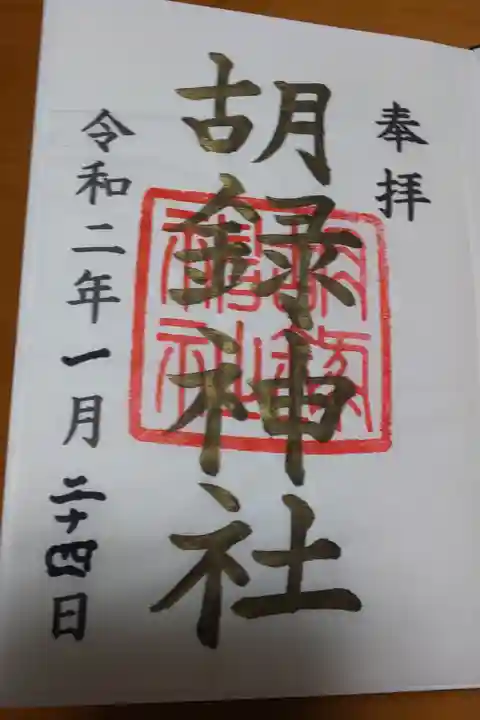 奉拝
胡録神社
令和二年一月二十四日